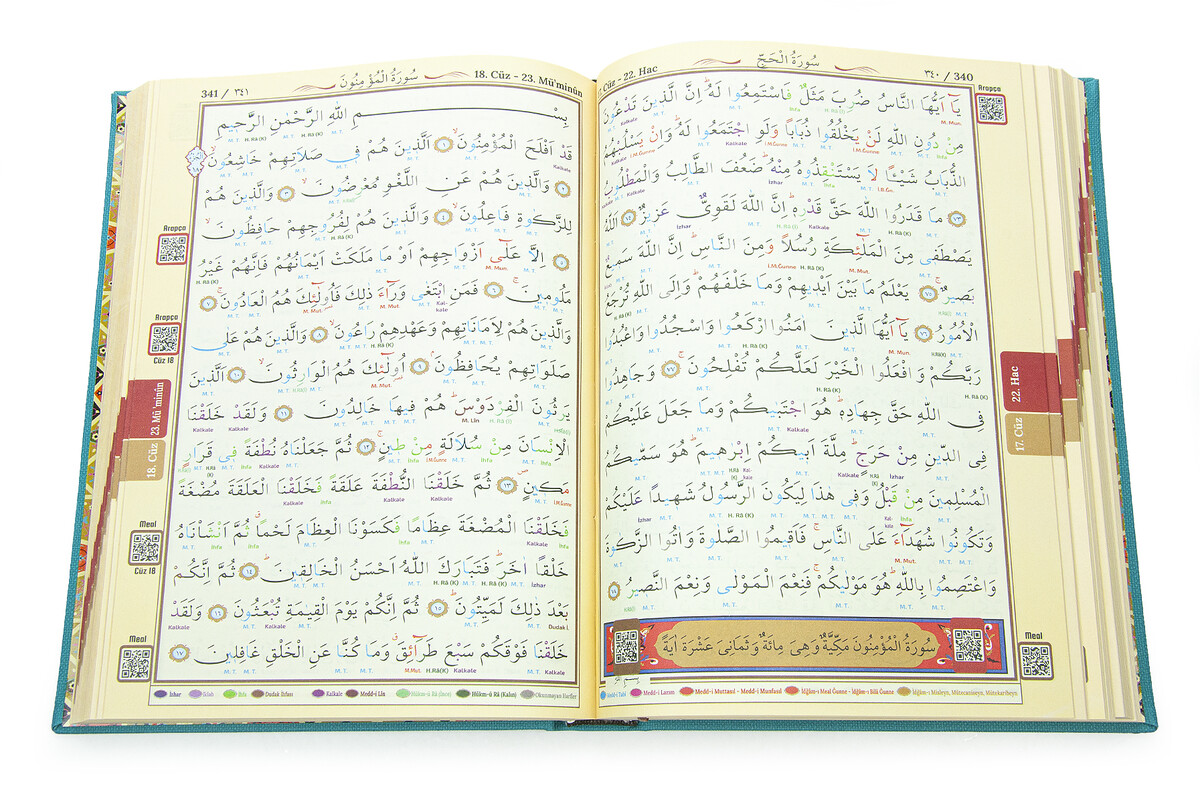 ٣٤٠ / 340
سُورَةُ الْحَجِّ
Cüz - 22. Hac
Arapça
يَٓا اَيُّهَا النَّاسُ ضُرِبَ مَثَلٌ فَاسْتَمِعُوا لَهُۜ اِنَّ الَّذ۪ينَ تَدْعُونَ
مِنْ دُونِ اللّٰهِ لَنْ يَخْلُقُوا ذُبَابًا وَلَوِ اجْتَمَعُوا لَهُۜ وَاِنْ يَسْلُبْهُمُ
الذُّبَابُ شَيْـًٔا لَا يَسْتَنْقِذُوهُ مِنْهُۜ ضَعُفَ الطَّالِبُ وَالْمَطْلُوبُ
﴿٧٣﴾ مَا قَدَرُوا اللّٰهَ حَقَّ قَدْرِه۪ۜ اِنَّ اللّٰهَ لَقَوِيٌّ عَز۪يزٌ ﴿٧٤﴾ اَللّٰهُ
يَصْطَف۪ي مِنَ الْمَلٰٓئِكَةِ رُسُلًا وَمِنَ النَّاسِۜ اِنَّ اللّٰهَ سَم۪يعٌ
بَص۪يرٌۚ ﴿٧٥﴾ يَعْلَمُ مَا بَيْنَ اَيْد۪يهِمْ وَمَا خَلْفَهُمْۜ وَاِلَى اللّٰهِ تُرْجَعُ
الْاُمُورُ ﴿٧٦﴾ يَٓا اَيُّهَا الَّذ۪ينَ اٰمَنُوا ارْكَعُوا وَاسْجُدُوا وَاعْبُدُوا
رَبَّكُمْ وَافْعَلُوا الْخَيْرَ لَعَلَّكُمْ تُفْلِحُونَۚ ﴿٧٧﴾ وَجَاهِدُوا
فِي اللّٰهِ حَقَّ جِهَادِه۪ۜ هُوَ اجْتَبٰيكُمْ وَمَا جَعَلَ عَلَيْكُمْ
فِي الدّ۪ينِ مِنْ حَرَجٍۜ مِلَّةَ اَب۪يكُمْ اِبْرٰه۪يمَۜ هُوَ سَمّٰيكُمُ
الْمُسْلِم۪ينَ مِنْ قَبْلُ وَف۪ي هٰذَا لِيَكُونَ الرَّسُولُ شَه۪يدًا عَلَيْكُمْ
وَتَكُونُوا شُهَدَٓاءَ عَلَى النَّاسِۚ فَاَق۪يمُوا الصَّلٰوةَ وَاٰتُوا الزَّكٰوةَ
وَاعْتَصِمُوا بِاللّٰهِۜ هُوَ مَوْلٰيكُمْۚ فَنِعْمَ الْمَوْلٰى وَنِعْمَ النَّص۪يرُ ﴿٧٨﴾
سُورَةُ الْمُؤْمِنُونَ مَكِّيَّةٌ وَهِيَ مِائَةٌ وَثَمَانِيَ عَشْرَةَ اٰيَةً
22. Hac
17. Cüz
Meal
Medd-i Tabi Medd-i Lazım Medd-i Muttasıl - Medd-i Munfasıl İdğâm-ı Meal Ğunne - İdğâm-ı Bilâ Ğunne İdğâm-ı Misleyn, Mütecaniseyn, Mütekaribeyn
18. Cüz - 23. Mü'minûn
سُورَةُ الْمُؤْمِنُونَ
341 / ٣٤١
بِسْــــــــمِ اللّٰهِ الرَّحْمٰنِ الرَّح۪يمِ
قَدْ اَفْلَحَ الْمُؤْمِنُونَۙ ﴿١﴾ اَلَّذ۪ينَ هُمْ ف۪ي صَلَاتِهِمْ خَاشِعُونَۙ
﴿٢﴾ وَالَّذ۪ينَ هُمْ عَنِ اللَّغْوِ مُعْرِضُونَۙ ﴿٣﴾ وَالَّذ۪ينَ هُمْ
لِلزَّكٰوةِ فَاعِلُونَۙ ﴿٤﴾ وَالَّذ۪ينَ هُمْ لِفُرُوجِهِمْ حَافِظُونَۙ
﴿٥﴾ اِلَّا عَلٰٓى اَزْوَاجِهِمْ اَوْ مَا مَلَكَتْ اَيْمَانُهُمْ فَاِنَّهُمْ غَيْرُ
مَلُوم۪ينَۚ ﴿٦﴾ فَمَنِ ابْتَغٰى وَرَٓاءَ ذٰلِكَ فَاُو۬لٰٓئِكَ هُمُ الْعَادُونَۚ ﴿٧﴾
وَالَّذ۪ينَ هُمْ لِاَمَانَاتِهِمْ وَعَهْدِهِمْ رَاعُونَۙ ﴿٨﴾ وَالَّذ۪ينَ هُمْ عَلٰى
صَلَوَاتِهِمْ يُحَافِظُونَۢ ﴿٩﴾ اُو۬لٰٓئِكَ هُمُ الْوَارِثُونَۙ ﴿١٠﴾ اَلَّذ۪ينَ
يَرِثُونَ الْفِرْدَوْسَۜ هُمْ ف۪يهَا خَالِدُونَ ﴿١١﴾ وَلَقَدْ خَلَقْنَا
الْاِنْسَانَ مِنْ سُلَالَةٍ مِنْ ط۪ينٍۚ ﴿١٢﴾ ثُمَّ جَعَلْنَاهُ نُطْفَةً ف۪ي قَرَارٍ
مَك۪ينٍۖ ﴿١٣﴾ ثُمَّ خَلَقْنَا النُّطْفَةَ عَلَقَةً فَخَلَقْنَا الْعَلَقَةَ مُضْغَةً
فَخَلَقْنَا الْمُضْغَةَ عِظَامًا فَكَسَوْنَا الْعِظَامَ لَحْمًاۗ ثُمَّ اَنْشَأْنَاهُ
خَلْقًا اٰخَرَۜ فَتَبَارَكَ اللّٰهُ اَحْسَنُ الْخَالِق۪ينَۜ ﴿١٤﴾ ثُمَّ اِنَّكُمْ
بَعْدَ ذٰلِكَ لَمَيِّتُونَۜ ﴿١٥﴾ ثُمَّ اِنَّكُمْ يَوْمَ الْقِيٰمَةِ تُبْعَثُونَ ﴿١٦﴾ وَلَقَدْ
خَلَقْنَا فَوْقَكُمْ سَبْعَ طَرَٓائِقَۗ وَمَا كُنَّا عَنِ الْخَلْقِ غَافِل۪ينَ ﴿١٧﴾
Arapça
Arapça
Cüz 18
23. Mü'minûn
18. Cüz
Meal
Cüz 18
Meal
İzhar İklab İhfa Dudak İhfası Kalkale Medd-i Lîn Hükm-ü Râ (İnce) Hükm-ü Râ (Kalın) Okunmayan Harfler